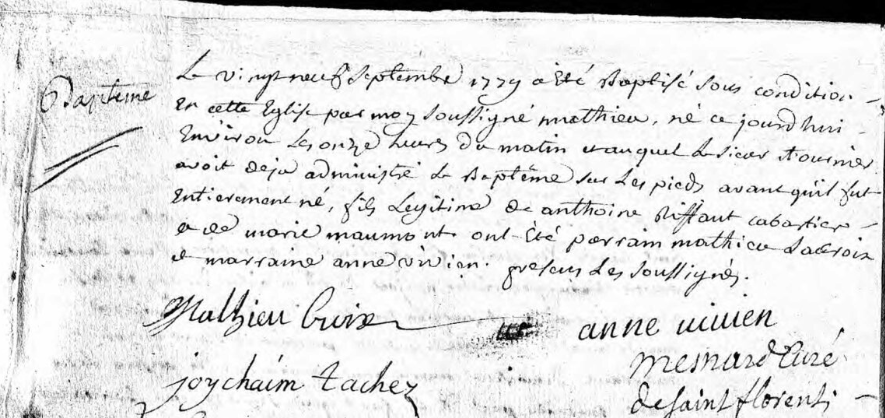 Baptême
Le vingt neuf Septembre 1779 a été Baptisé sous condition
En cette Eglise par moy soussigné mathieu, né ce jourd'hui
Environ Les onze heures du matin et auquel Le sieur
avoit deja administré Le Baptême sur Les pieds avant qu'il fut
Entierement né, fils Legitime de anthoine Riffaut cabartier
et de marie maumont ont Été parrain mathieu Lacroix
et marraine anne vivien. presens Les soussignés.
Mathieu Croix anne vivien
joychaim tachez mesnard Curé
de saint florent